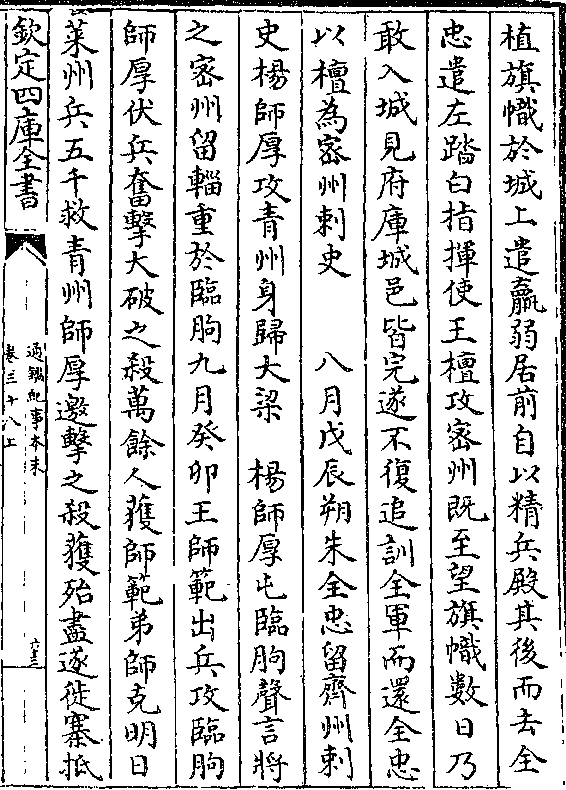 植旗幟於城上遣羸弱居前自以精兵殿其後而去全
忠遣左踏白指揮使王檀攻密州既至望旗幟數日乃
敢入城見府庫城邑皆完遂不復追訓全軍而還全忠
以檀為密州刺史　八月戊辰朔朱全忠留齊州刺
史楊師厚攻青州身歸大梁　楊師厚屯臨朐聲言將
之密州留輜重於臨朐九月癸卯王師範出兵攻臨朐
師厚伏兵奮擊大破之殺萬餘人獲師範弟師克明日
萊州兵五千救青州師厚邀擊之殺獲殆盡遂徙寨抵
欽定四庫全書
通鑑紀事本末
卷三十八上
六三